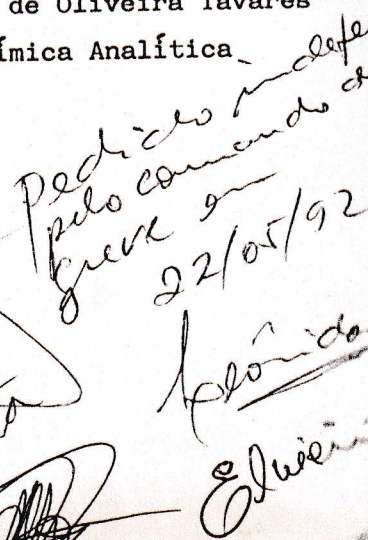 de Oliveira Tavares
ímica Analítica
Pedido indefe
pelo comando de
greve em
22/05/92
Leônida